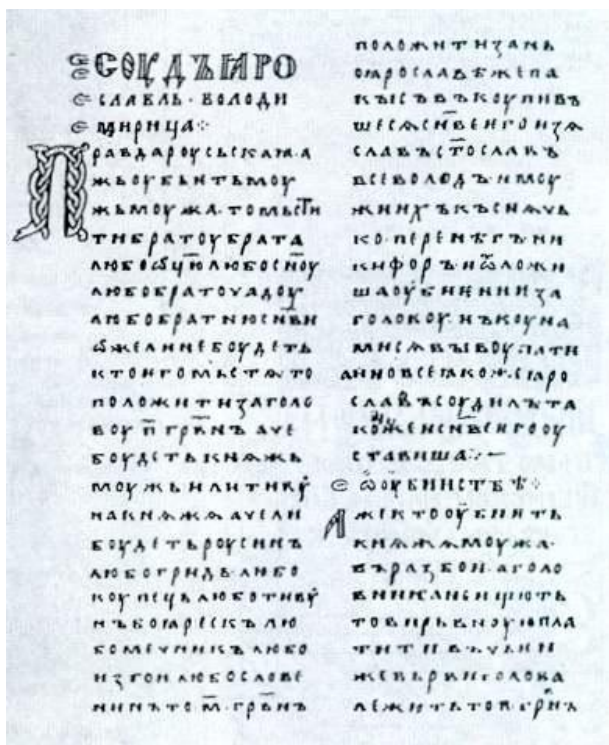 СОУДЪ ꙖРО
СЛАВЛЬ · ВОЛОДИ
МИРИЦА ⁘
Правдароусьскаꙗ · а
жьоубьитьмоу
жьмоужа · томьсти
тибратоубрата
любоѡц҃ю любосн҃оу
любобратоучадоу
любобратнюсн҃ви
ѡжелинебоудеть
ктоѥгомьстѧто
положитизаголо
воу п҃ грв҃нъ аче
боудетькнѧжь
моужьилитивоу
накнѧжѧачели
боудетьроусинъ
любогридь · любо
коупецьлюботивоу
нъбоꙗрескълю
бомечникълюбо
изгоилюбослове
нинъто м҃ грв҃нъ
положитизань
поꙗрославѣжепа
кысъвъкоупивъ
шесѧсн҃веѥгоизѧ
славъст҃ославъ
всеволодъ · имоу
жиихъкъснѧчь
ко · перенѣгъни
кифоръиѿложи
шаоубиѥниѥза
головоу · нъкоуна
мисѧвыкоупати
аиновсеꙗкожеꙗро
славъсоудилъта
кожеисн҃веѥгооу
ставиша ⁘ —
ѡоубииствѣ ⁘
Ажектооубиить
кнѧжѧмоужа ·
въразбоиаголо
вникanеищють
товирьвноуюпла
титивъчьѥи
жевьрвиголова
лежитьтоп҃грв҃нъ